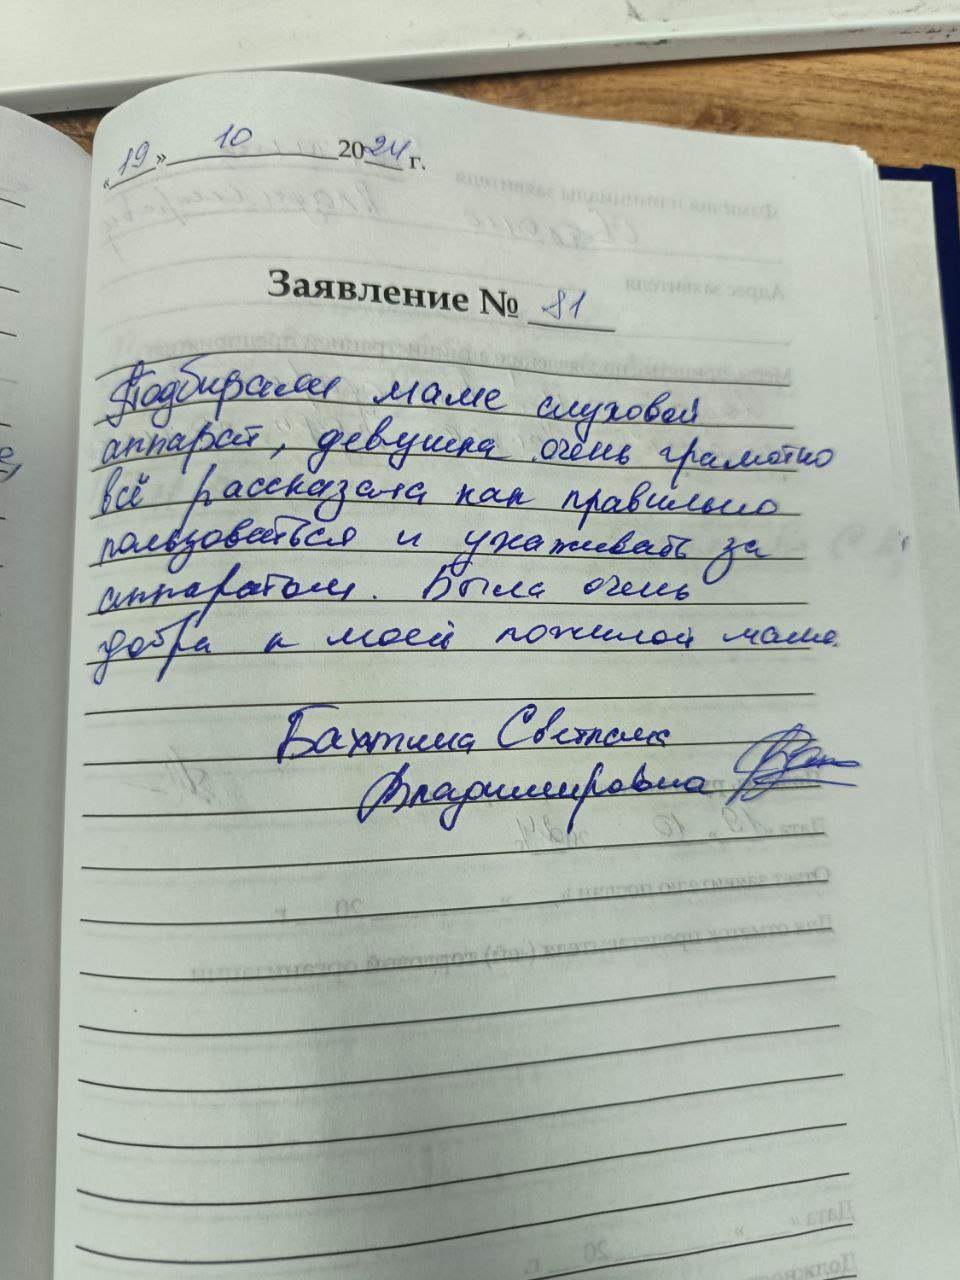 «19» 10 2024 г.
Заявление № 81
Подбирали маме слуховой
аппарат, девушка очень грамотно
всё рассказала как правильно
пользоваться и ухаживать за
аппаратом. Была очень
добра к моей пожилой маме.
Бахтина Светлана
Владимировна